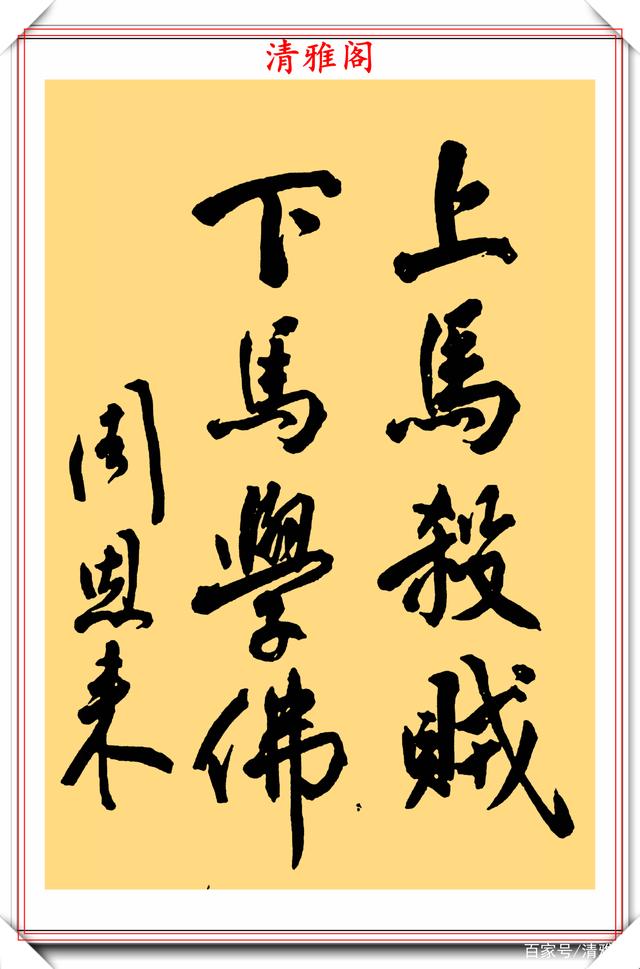 清雅阁
上馬殺賊
下馬學佛
周恩来
百家号/清雅